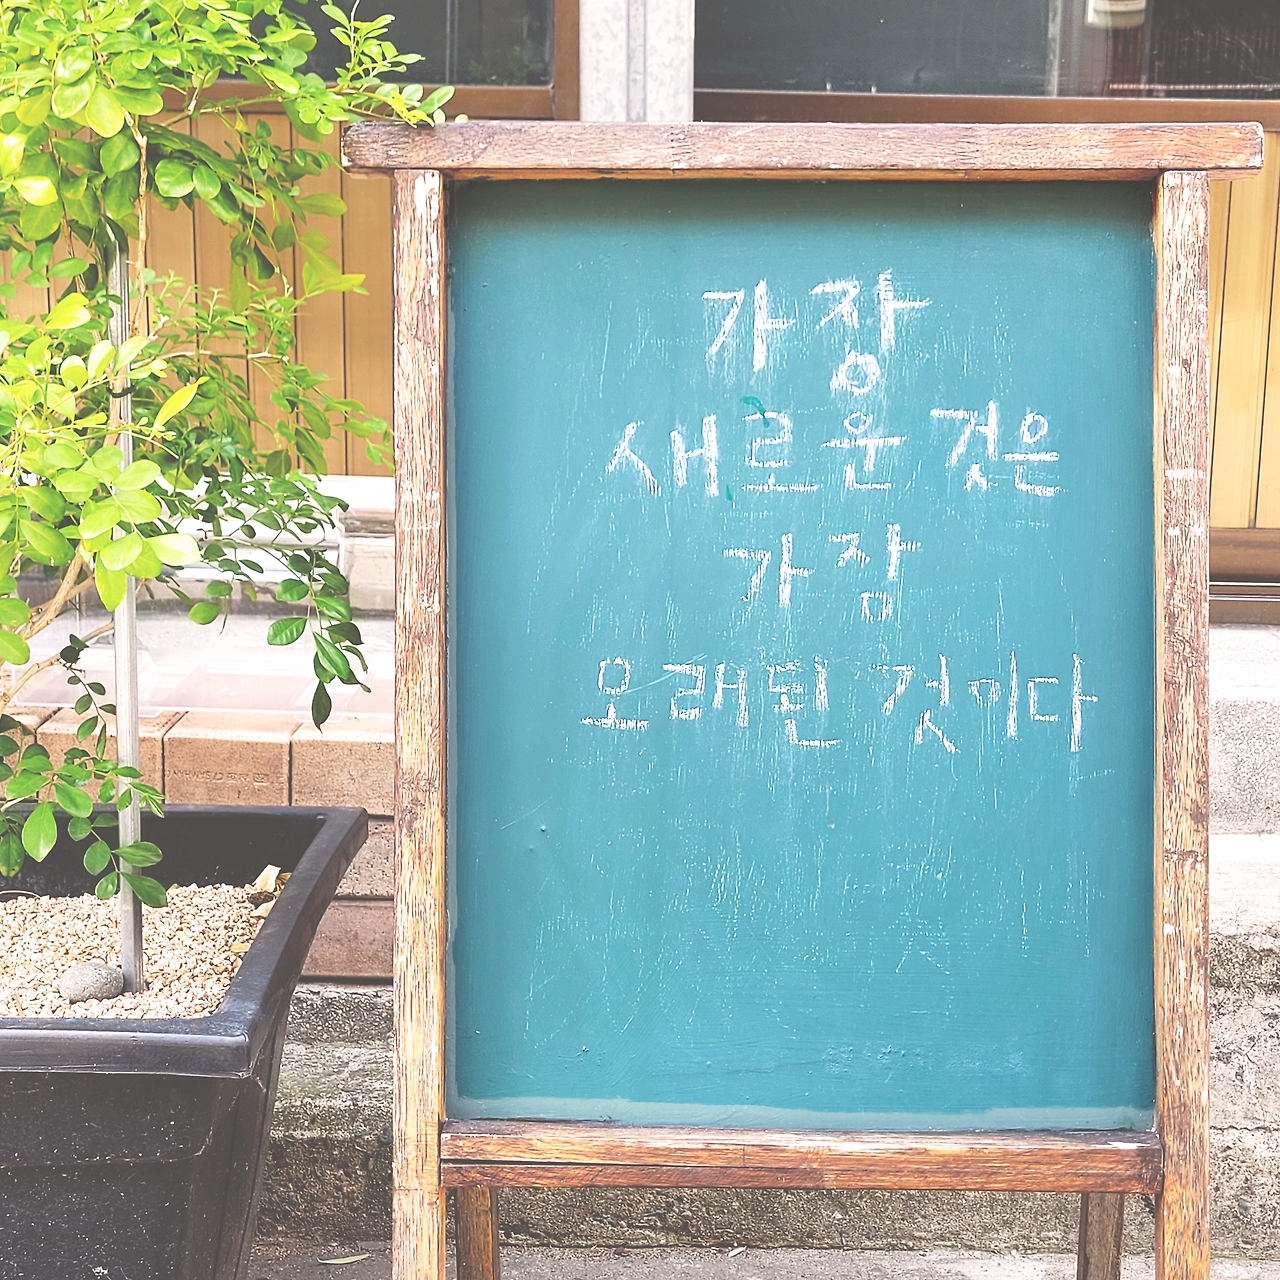 가장
새로운 것은
가장
오래된 것이다